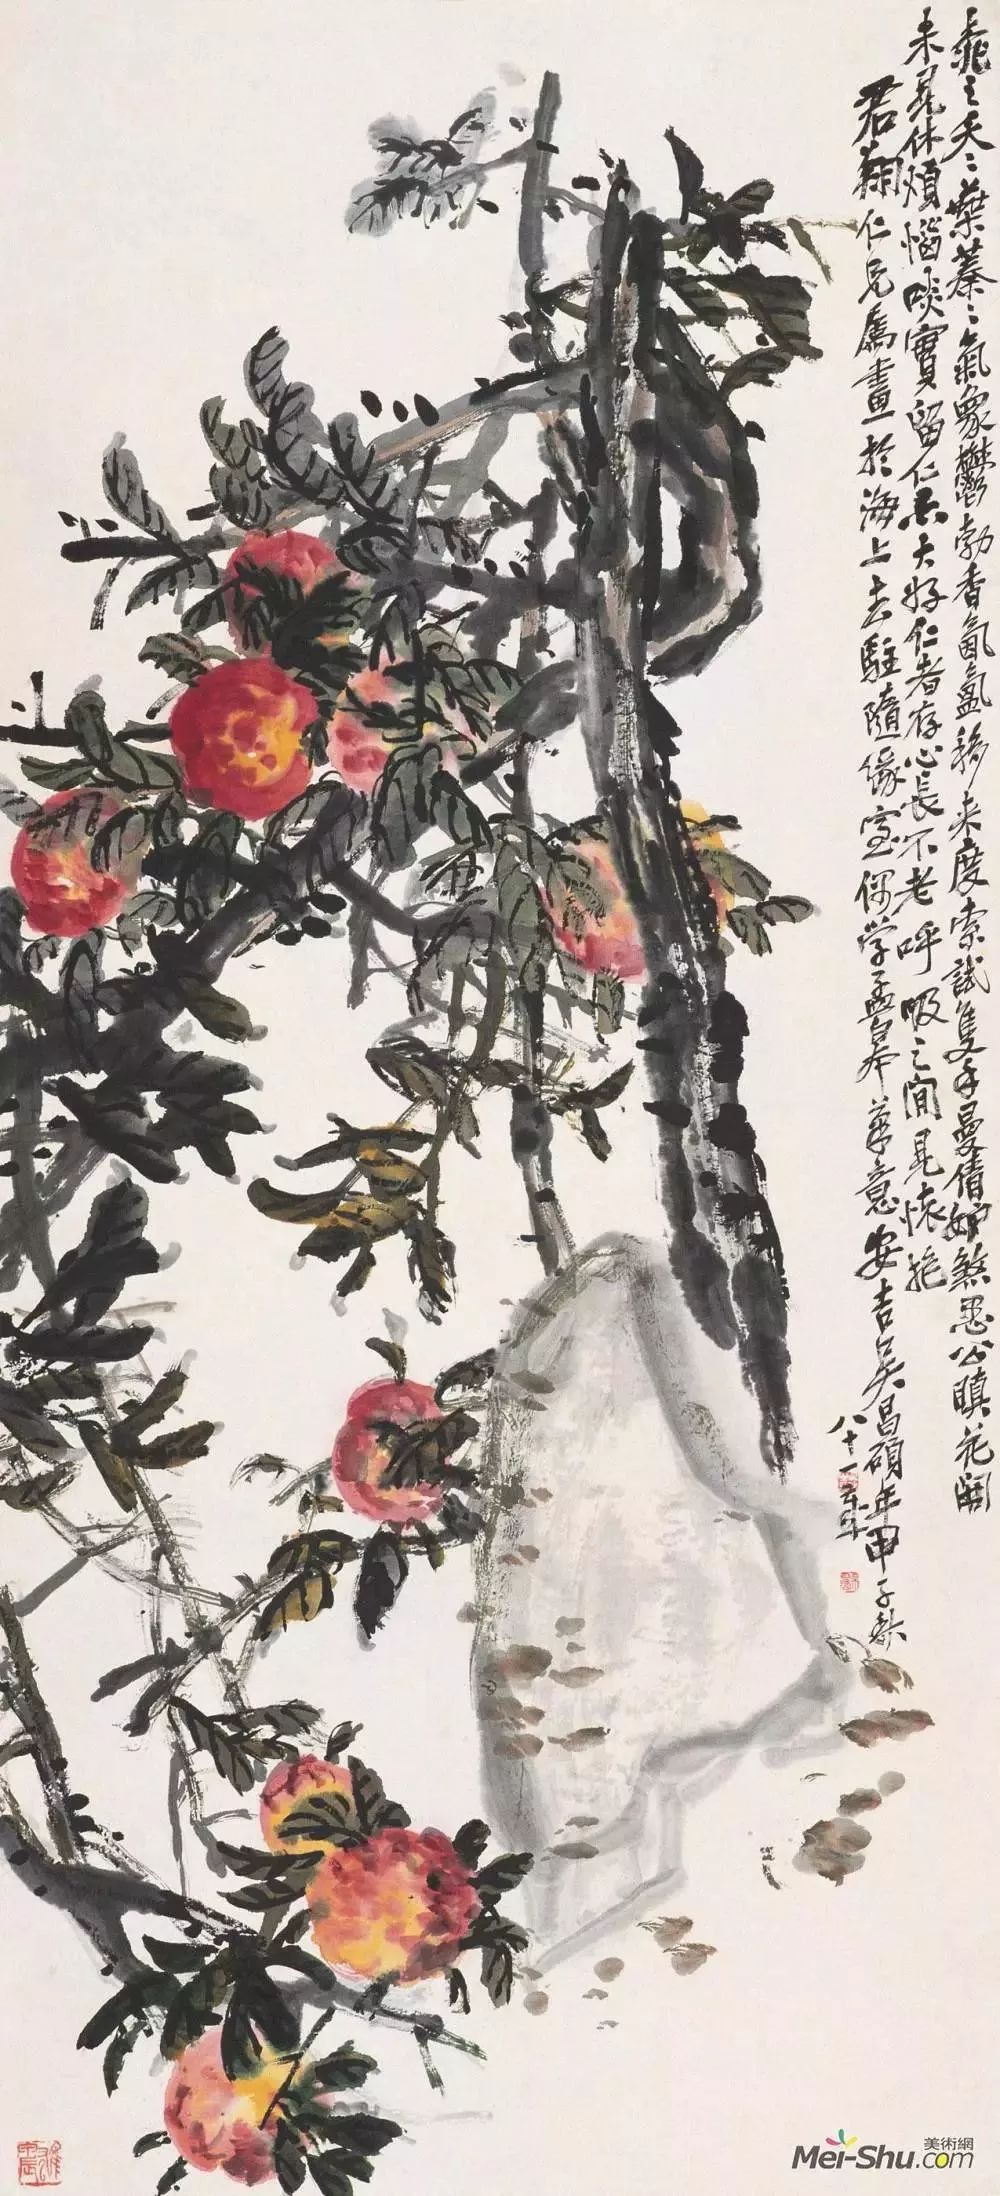 桃之夭〻葉蓁〻氣象鬱勃香氤氳移來度索試隻手曼倩妒煞愚公瞋花開
未見休煩惱啖實留仁亦大好仁者存心長不老呼吸之間見懷抱
君翔仁兄屬畫於海上去駐隨緣室偶學孟皋筆意安吉吳昌碩年甲子秋
八十一
美術網
Mei-Shu.com